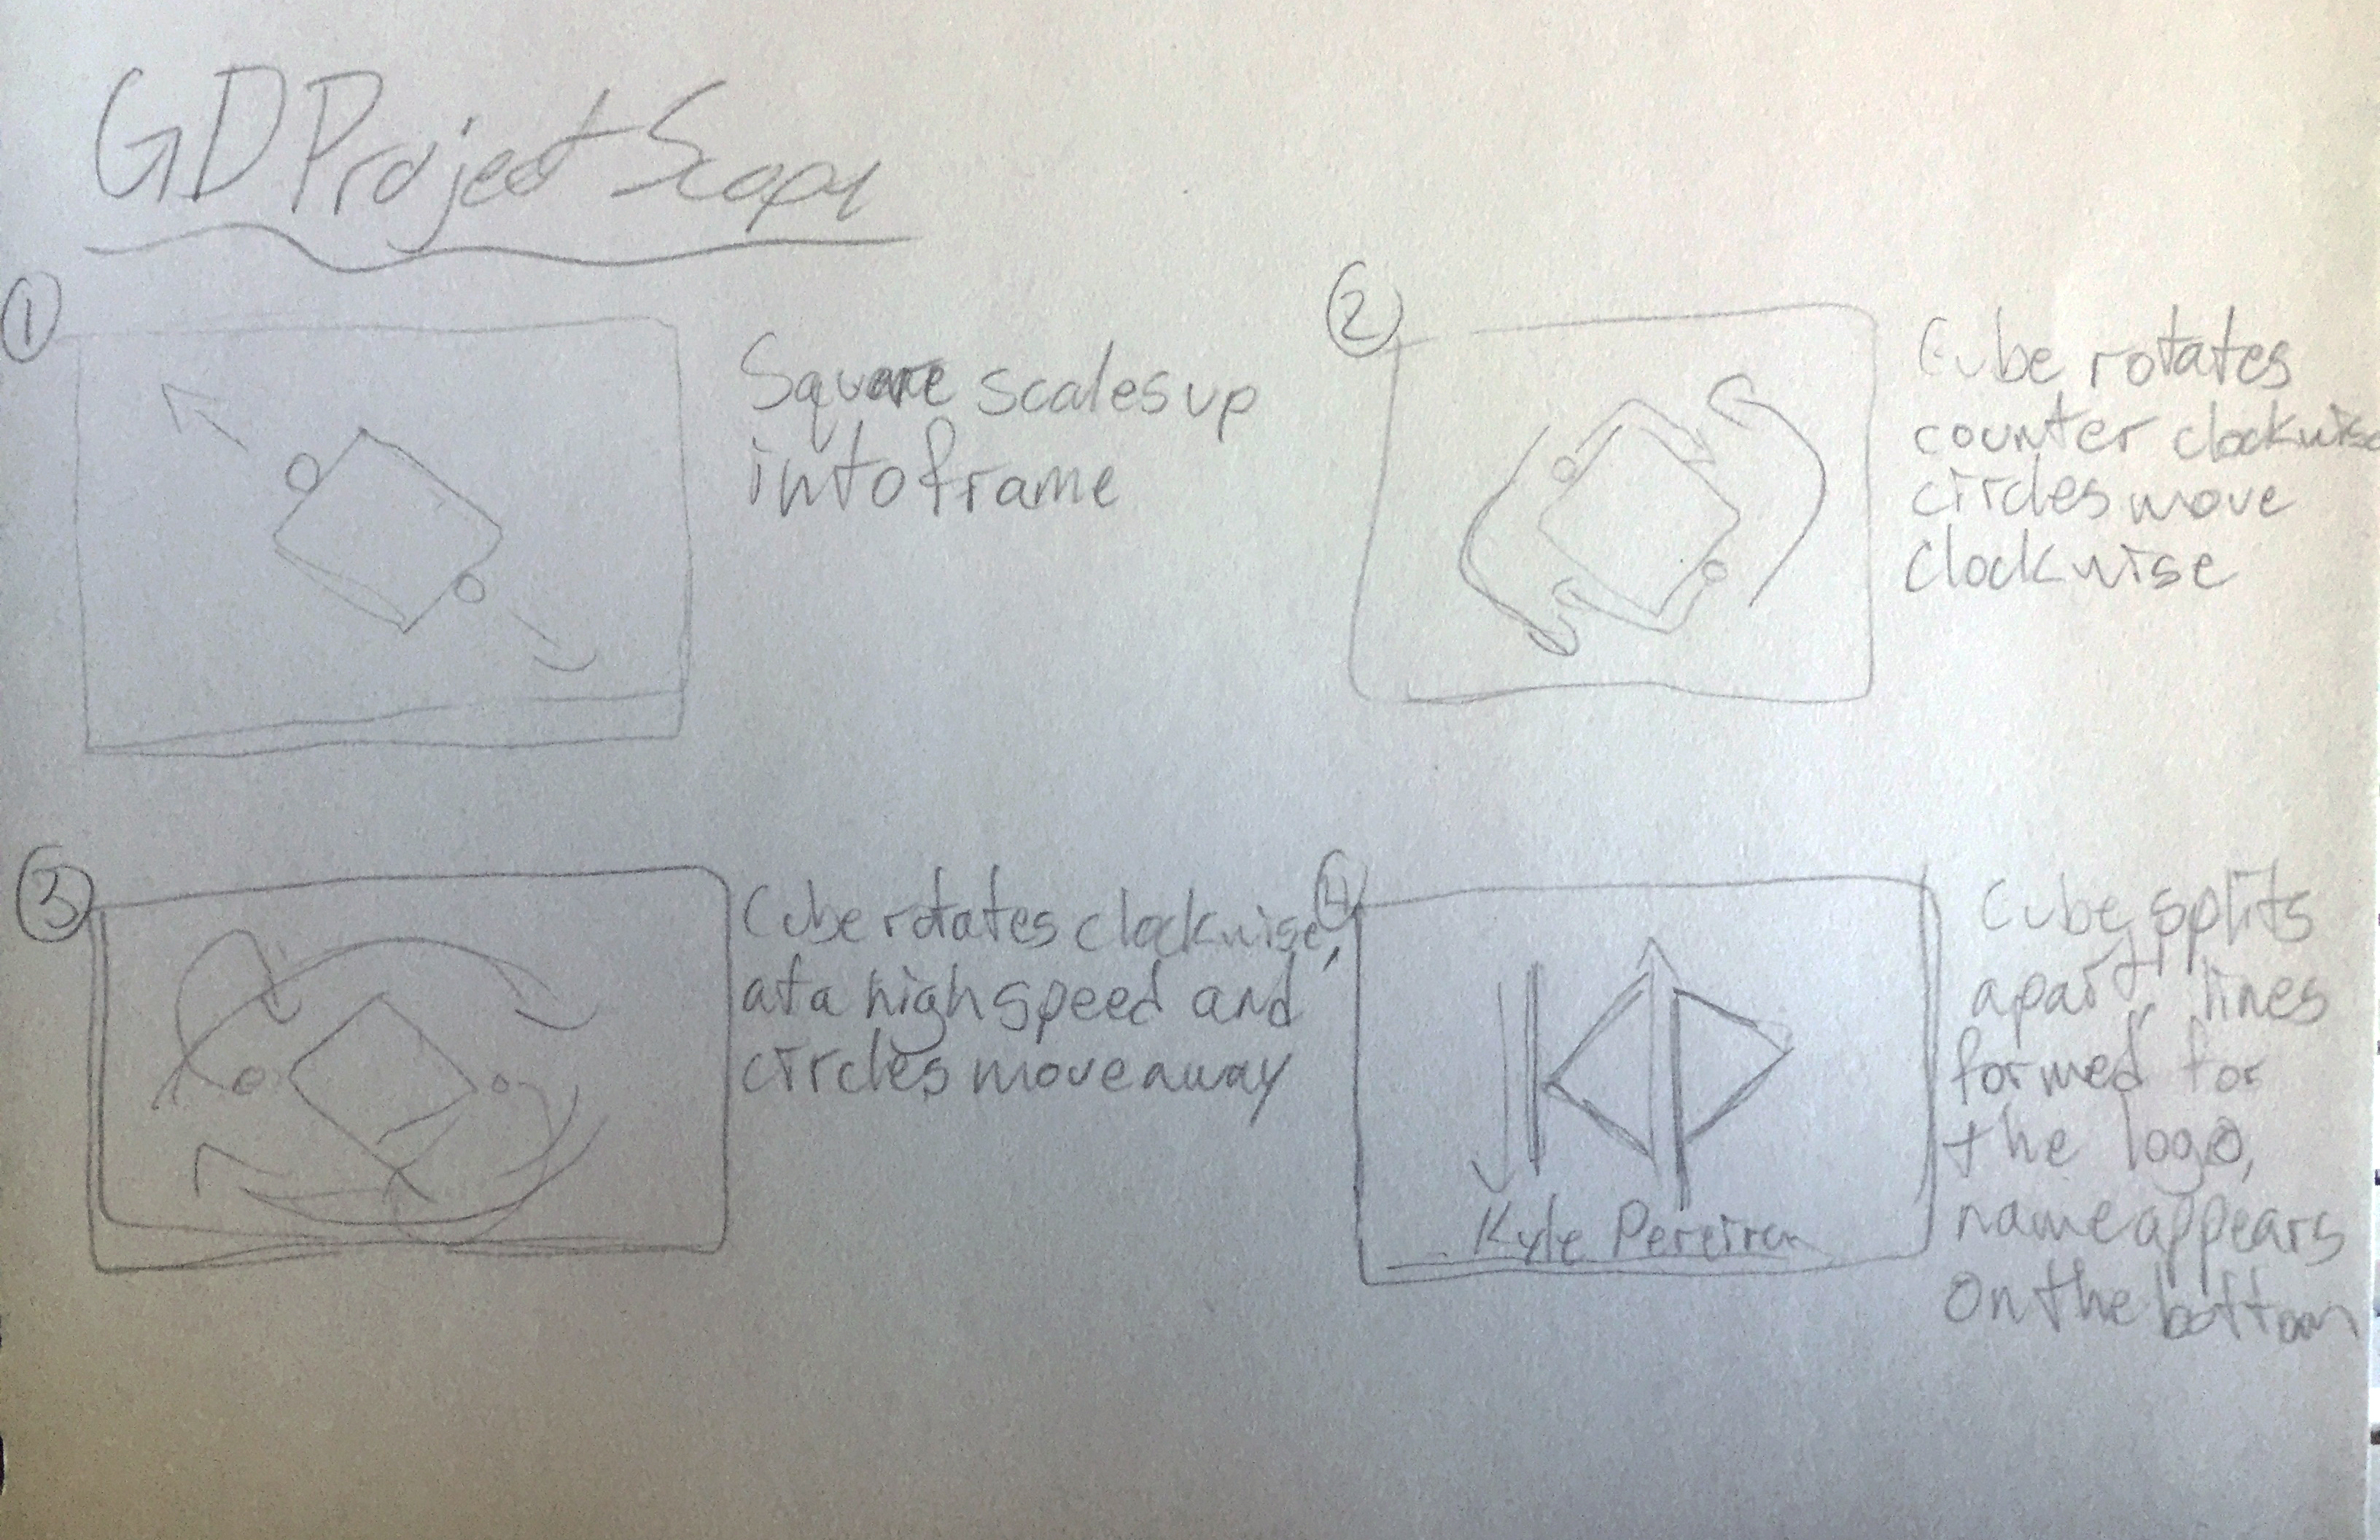 GD Project Scope
1
Square scales up
into frame
2
Cube rotates
counter clockwise
circles move
clockwise
3
Cube rotates clockwise,
at a high speed and
circles move away
4
Kyle Pereira
Cube splits
apart, lines
formed for
the logo,
name appears
on the bottom